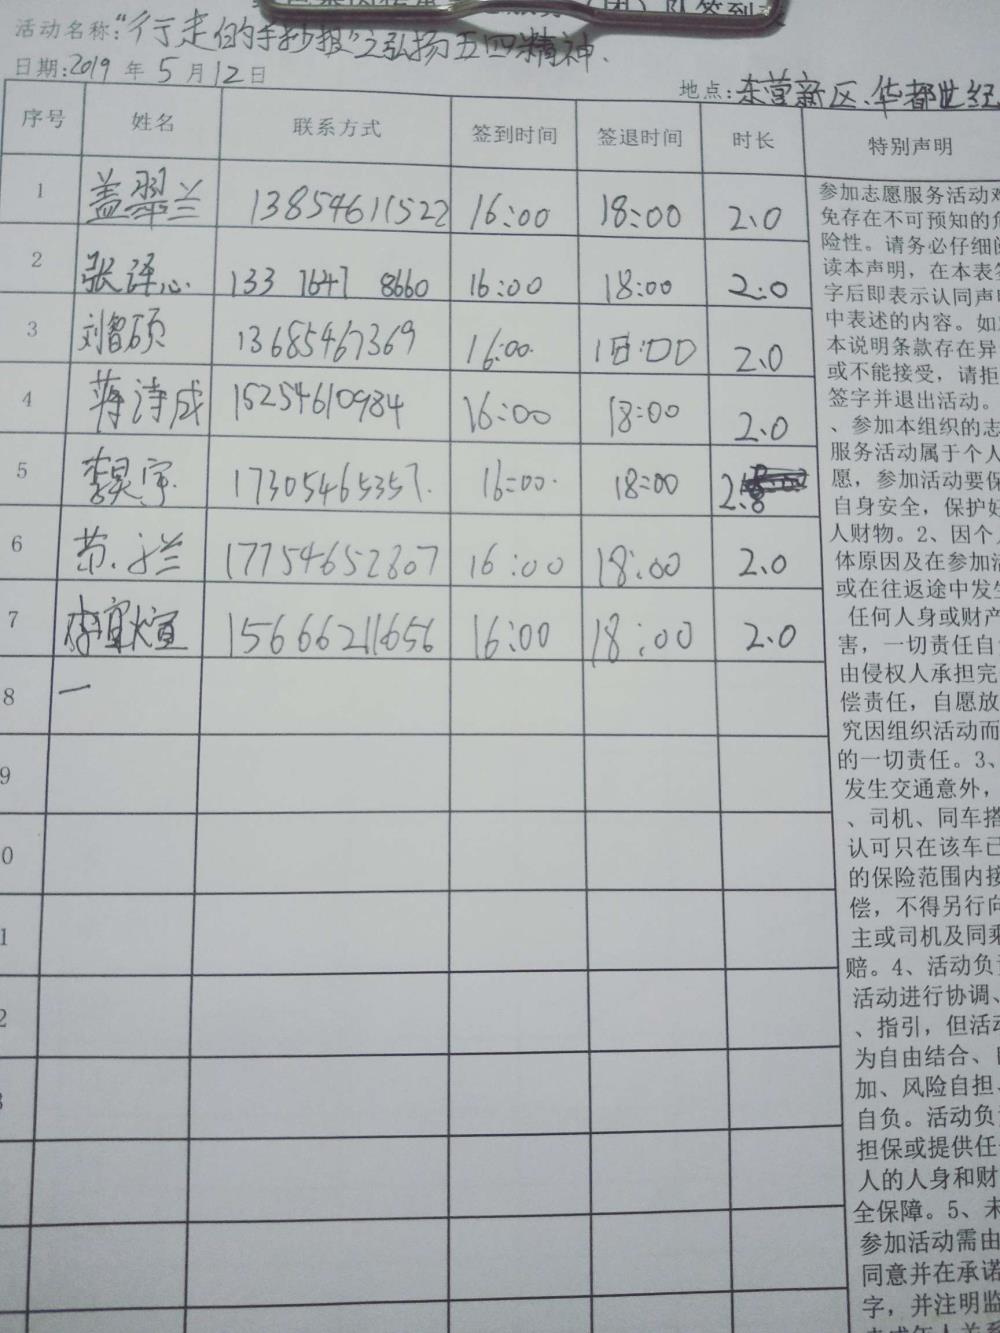 队签到表
活动名称:“行走的手抄报”之弘扬五四精神.
日期:2019 年 5 月 12 日
地点:东营新区.华都世纪
序号 姓名 联系方式 签到时间 签退时间 时长 特别声明
1 盖翠兰 13854611522 16:00 18:00 2.0
2 张译心 133 7647 8660 16:00 18:00 2.0
3 刘智硕 13685467369 16:00. 18:00 2.0
4 蒋诗成 15254610984 16:00 18:00 2.0
5 李昊宇. 17305465357. 16:00. 18:00
6 兰 17754652807 16:00 18:00 2.0
7 李宜煊 15666211656 16:00 18:00 2.0
8 一
9
0
1
2
3
参加志愿服务活动对
免存在不可预知的危
险性。请务必仔细阅
读本声明,在本表签
字后即表示认同声明
中表述的内容。如
本说明条款存在异
或不能接受,请拒
签字并退出活动。
、参加本组织的志
服务活动属于个人
愿,参加活动要保
自身安全,保护好
人财物。2、因个人
体原因及在参加活
或在往返途中发生
任何人身或财产
害,一切责任自
由侵权人承担完
偿责任,自愿放
究因组织活动而
的一切责任。3、
发生交通意外,
、司机、同车搭
认可只在该车已
的保险范围内接
偿,不得另行向
主或司机及同乘
赔。4、活动负责
活动进行协调、
、指引,但活动
为自由结合、自
加、风险自担、
自负。活动负责
担保或提供任何
人的人身和财
全保障。5、未
参加活动需由
同意并在承诺
字,并注明监
未成年人关系